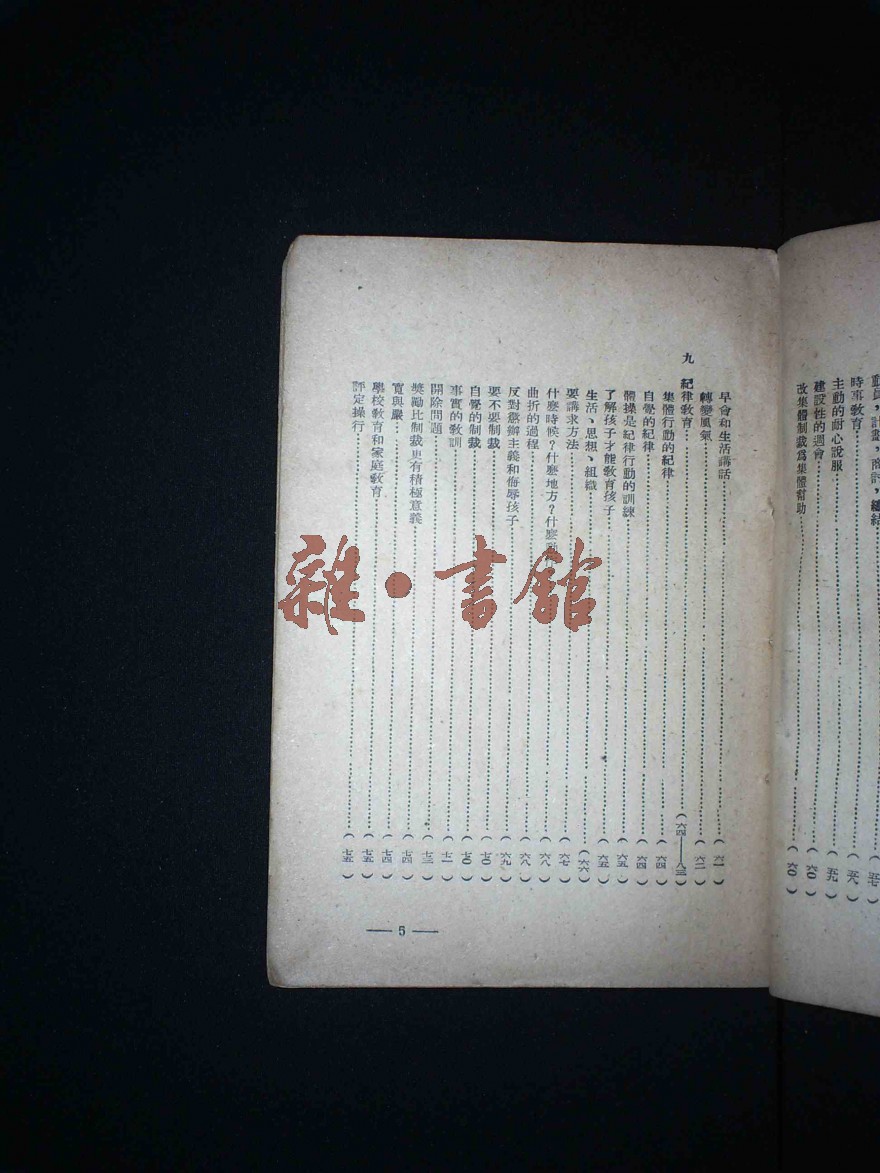 動員，計畫，商討，總結……（五七）
時事教育……（五八）
主動的耐心說服……（五九）
建設性的週會……（六〇）
改集體制裁爲集體幫助……（六〇）
早會和生活講話……（六一）
轉變風氣……（六二）
九　紀律教育……（六四——八三）
集體行動的紀律……（六四）
自覺的紀律……（六四）
體操是紀律行動的訓練……（六五）
了解孩子才能教育孩子……（六五）
生活、思想、組織……（六六）
要講求方法……（六七）
什麼時候？什麼地方？什麼……（六八）
曲折的過程……（六八）
反對懲辦主義和侮辱孩子……（六九）
要不要制裁……（七〇）
自覺的制裁……（七〇）
事實的教訓……（七二）
開除問題……（七三）
獎勵比制裁更有積極意義……（七四）
寬與嚴……（七四）
學校教育和家庭教育……（七五）
評定操行……（七五）
— 5 —
雜·書館